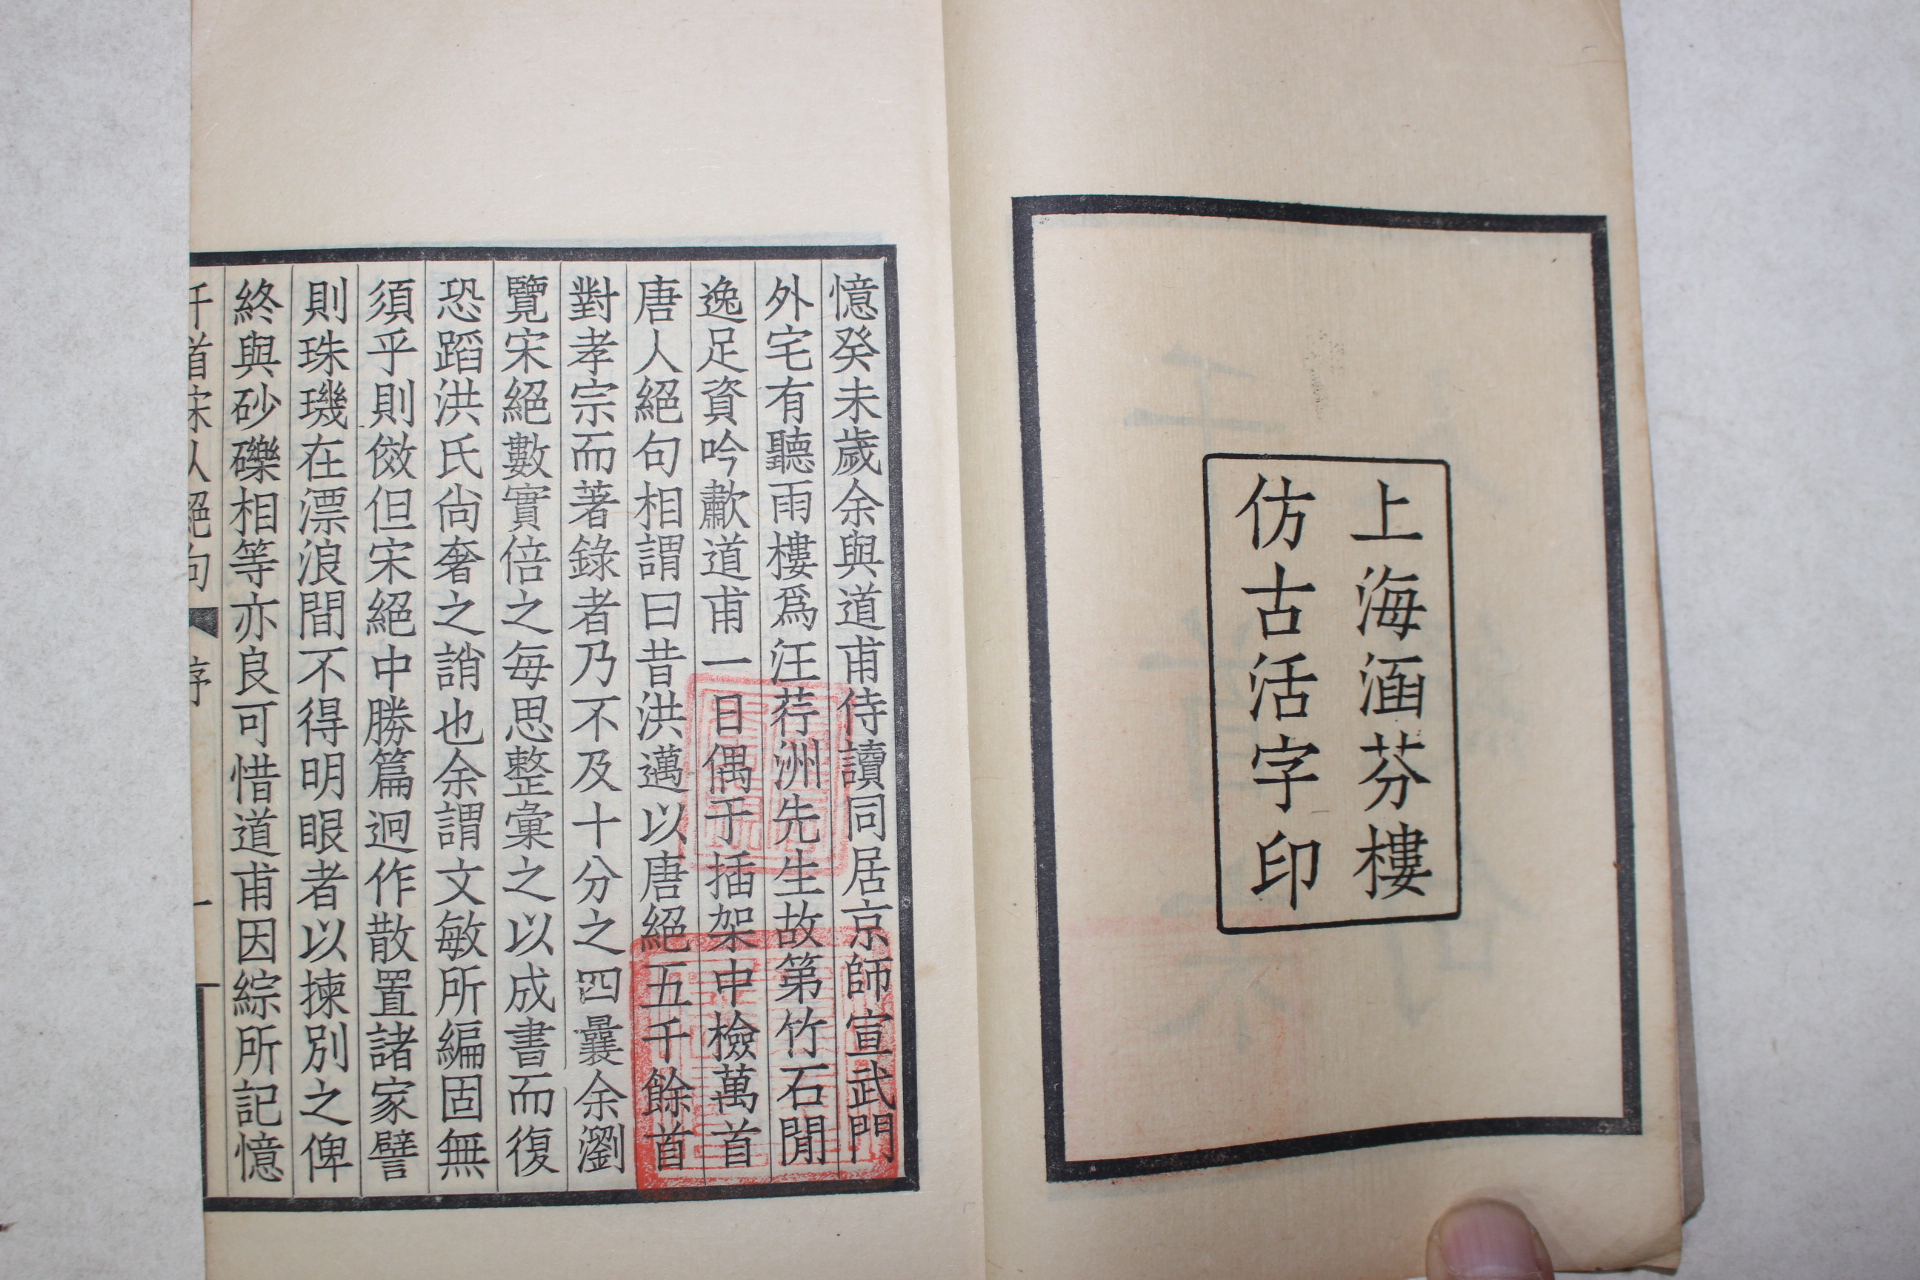 上海涵芬樓
仿古活字印
憶癸未歲余與道甫侍讀同居京師宣武門
外宅有聽雨樓爲汪荇洲先生故第竹石閒
逸足資吟歗道甫一日偶于插架中檢萬首
唐人絕句相謂曰昔洪邁以唐絕五千餘首
對孝宗而著錄者乃不及十分之四曩余瀏
覽宋絕數實倍之每思整彙之以成書而復
恐蹈洪氏尙奢之誚也余謂文敏所編固無
須乎則傚但宋絕中勝篇迥作散置諸家譬
則珠璣在漂浪間不得明眼者以揀別之俾
終與砂礫相等亦良可惜道甫因綜所記憶
千首宋人絕句 序 一